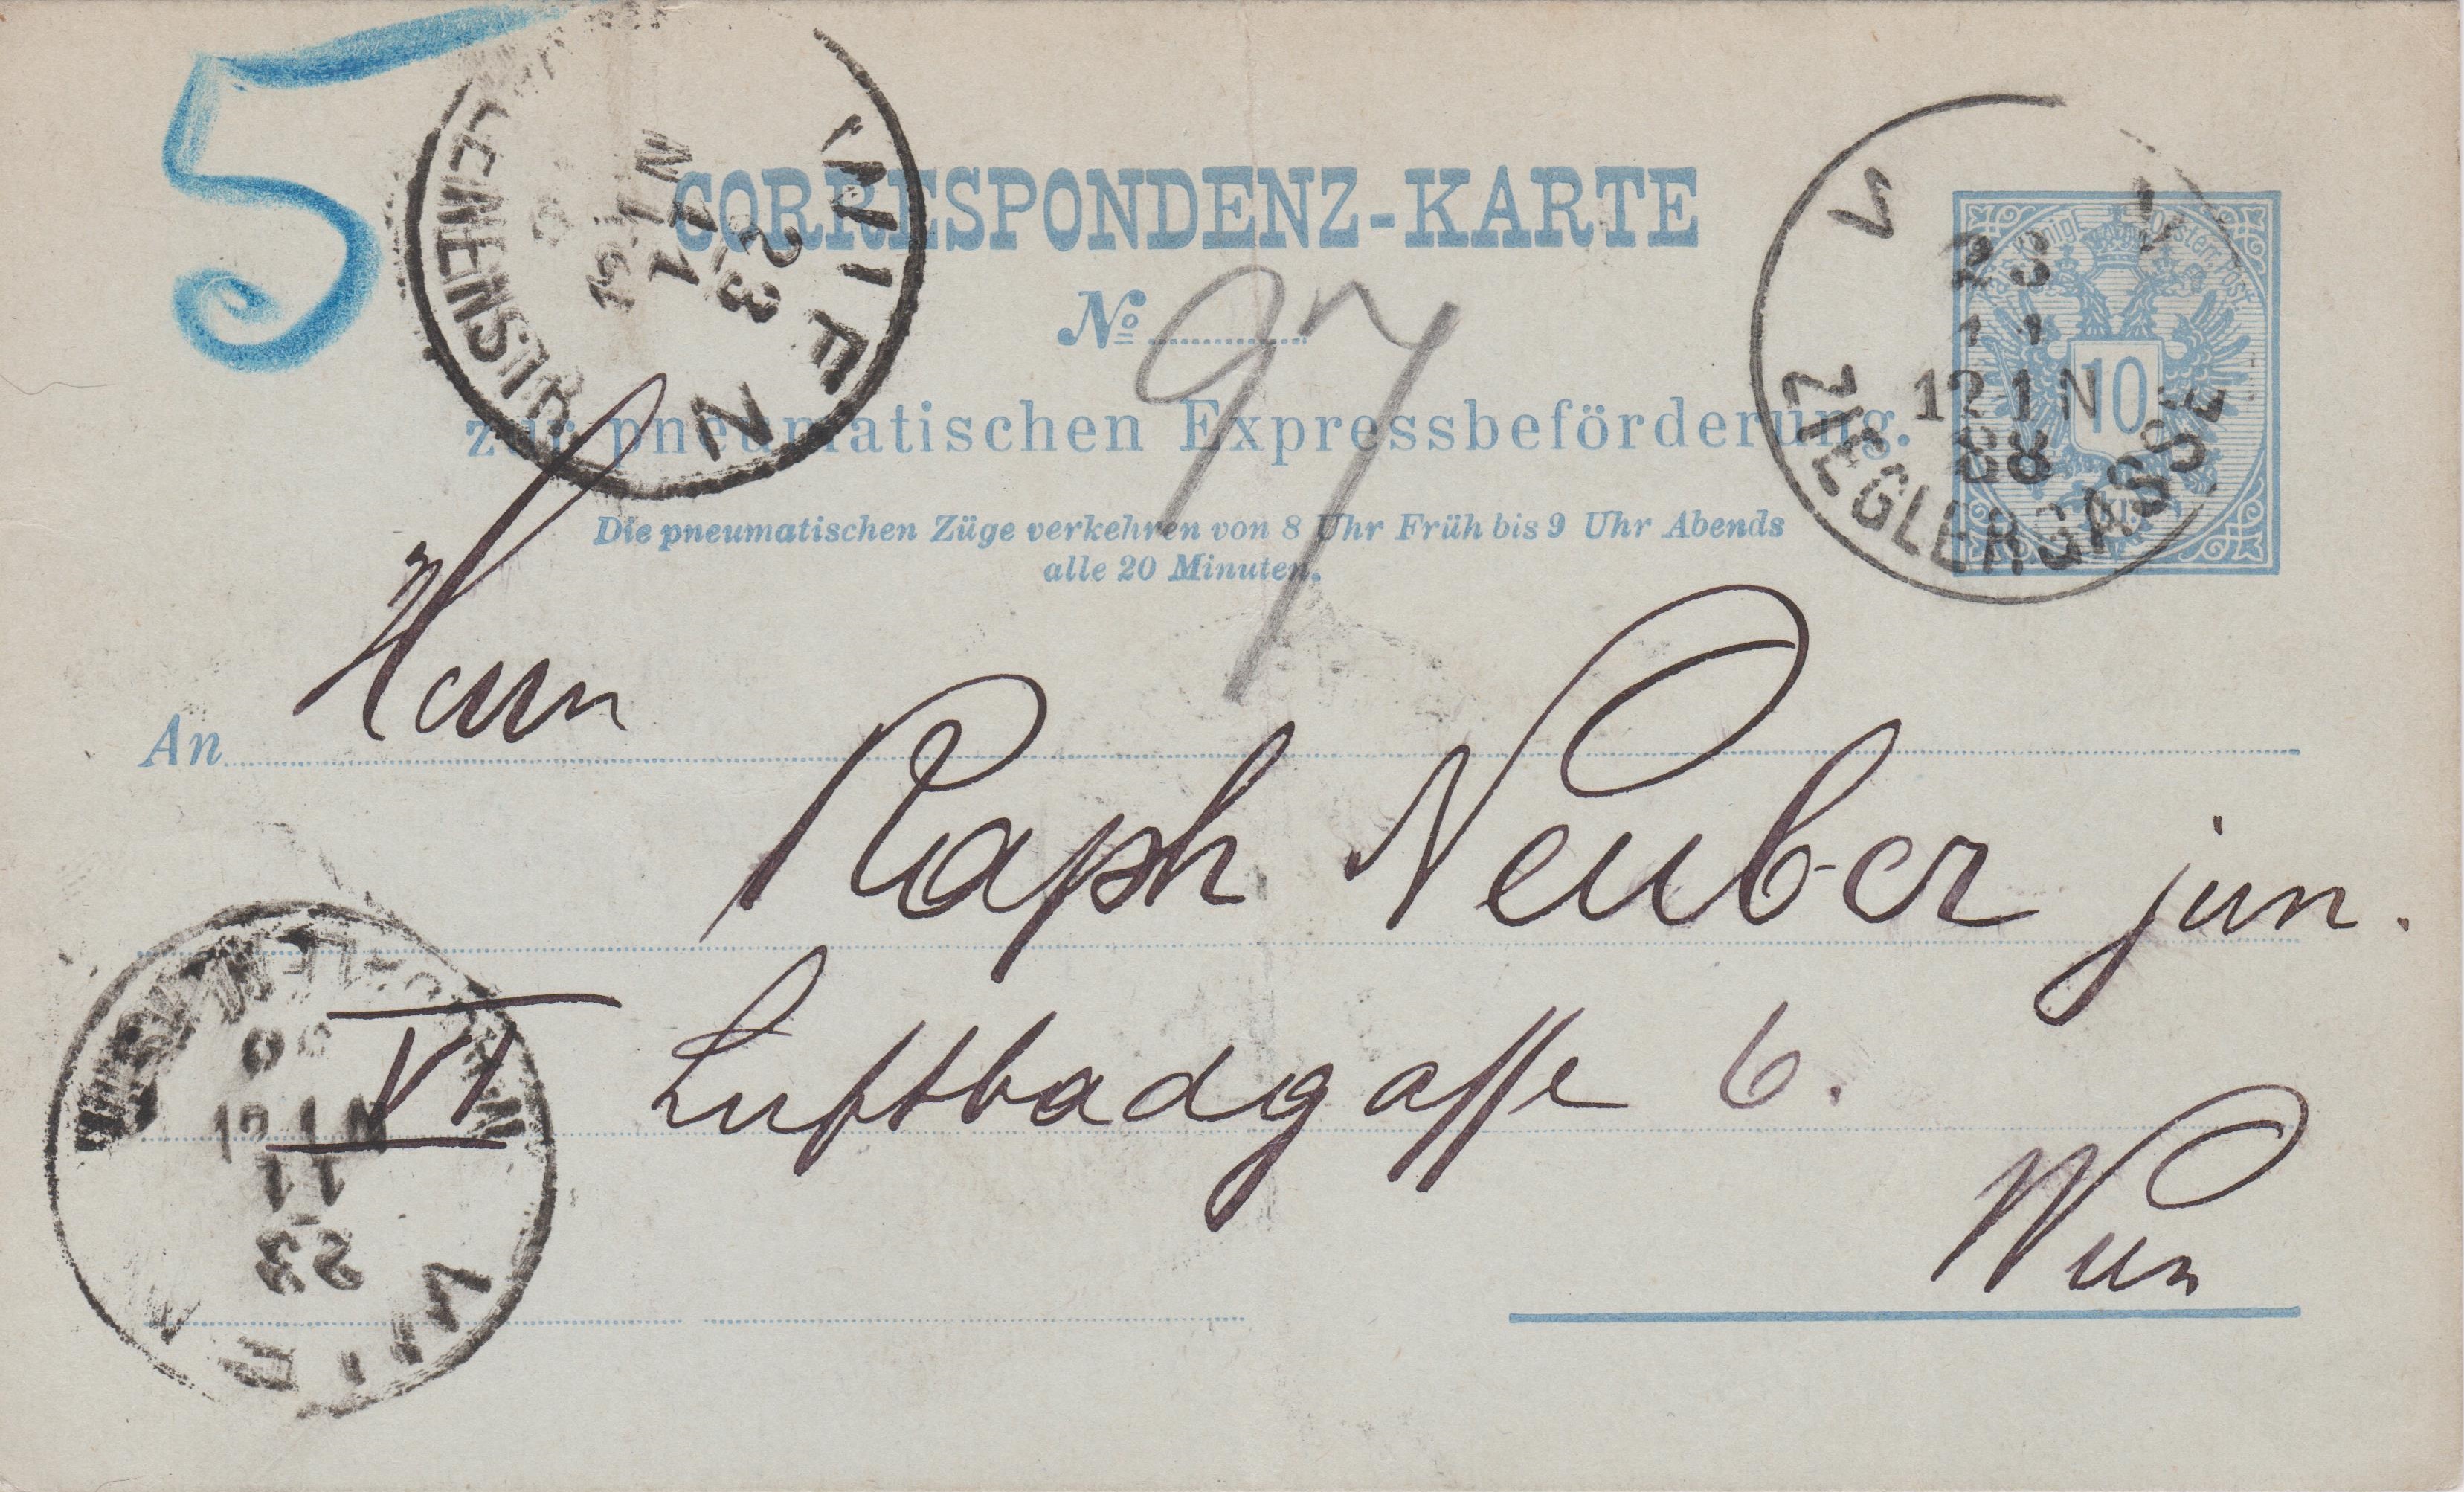 5
CORRESPONDENZ-KARTE
Nº 97
zur pneumatischen Expressbeförderung.
Die pneumatischen Züge verkehren von 8 Uhr Früh bis 9 Uhr Abends
alle 20 Minuten.
WIEN
23
11
ZIEGLERGASSE
23
11
12 1N
88
10
An Herrn
Raph Neuber jun.
VI Luftbadgasse 6.
Wien
WIEN
23
11
12 1N